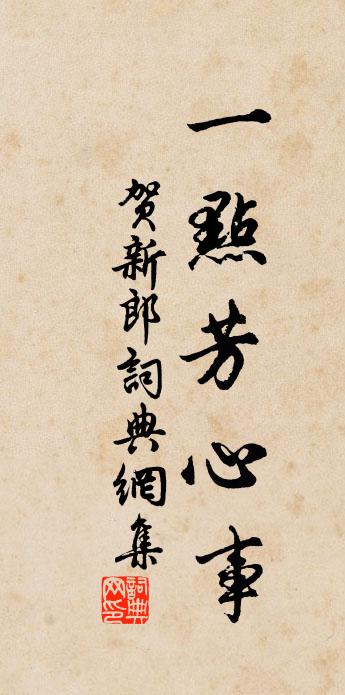 一點芳心事
贺新郎詞典網集
詞典网印